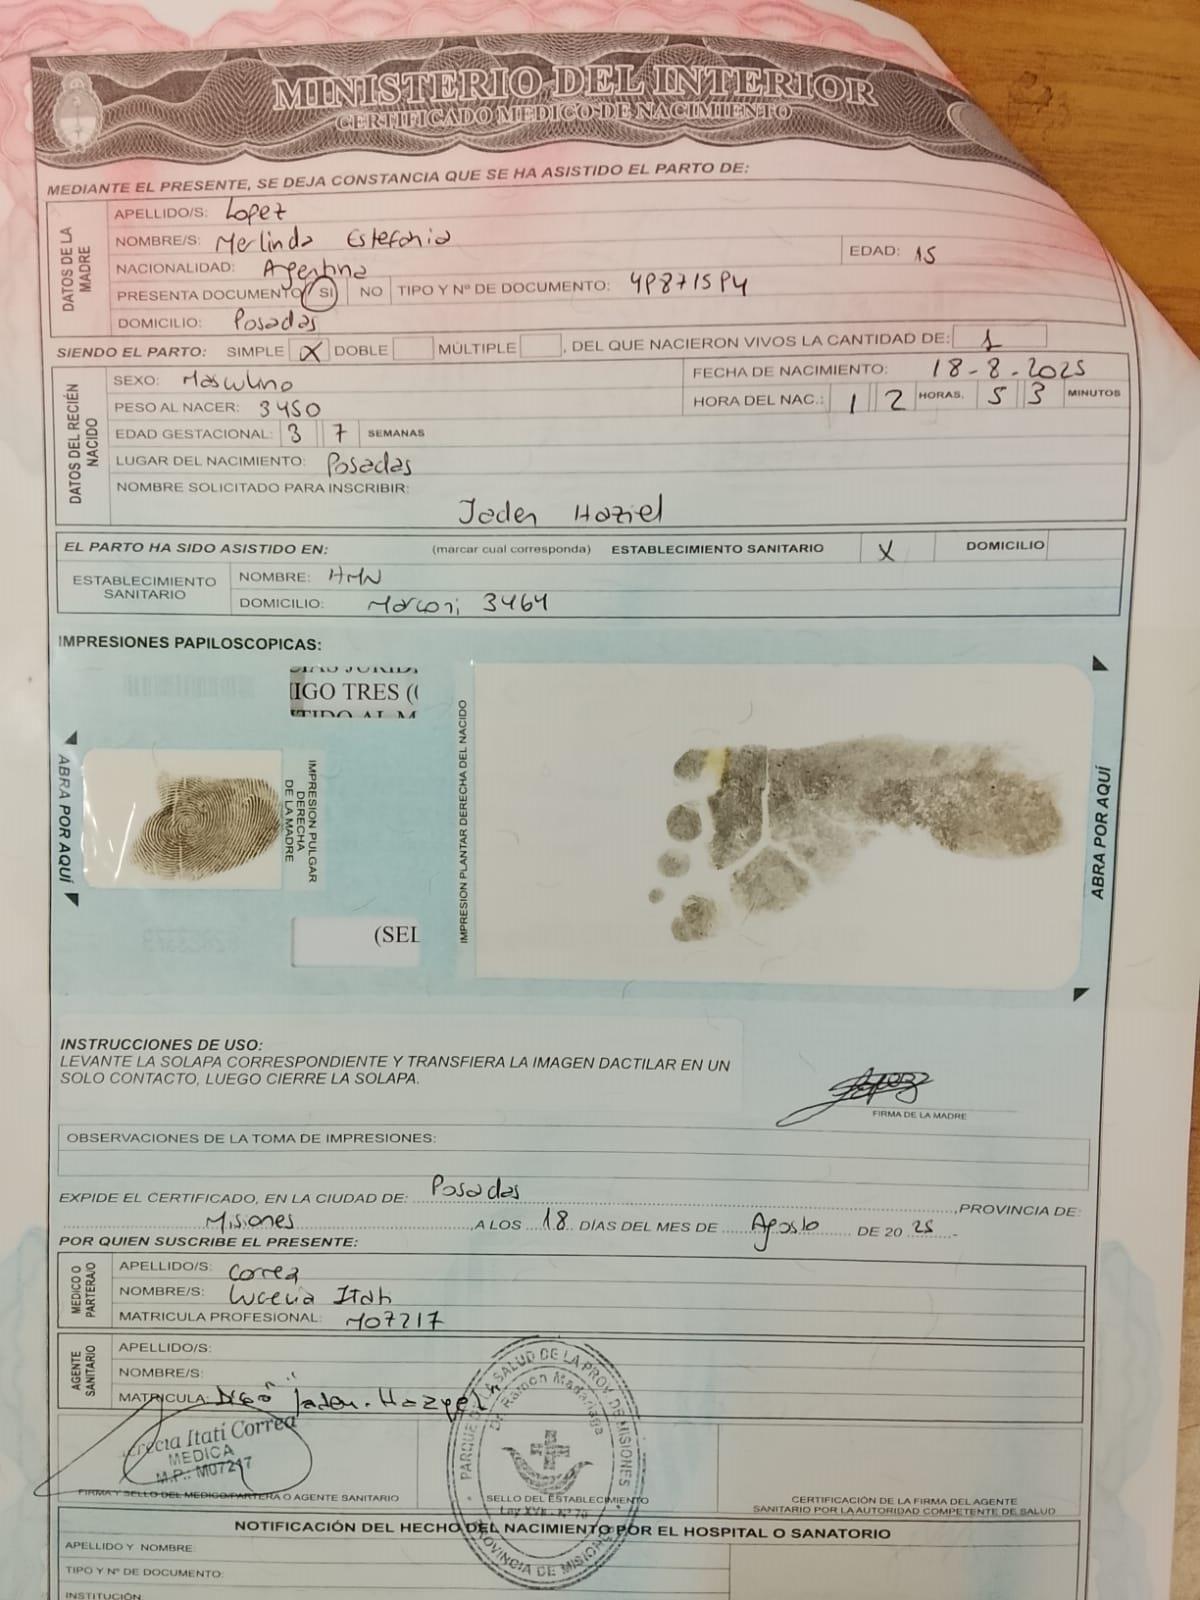 MINISTERIO DEL INTERIOR
CERTIFICADO MEDICO DE NACIMIENTO
MEDIANTE EL PRESENTE, SE DEJA CONSTANCIA QUE SE HA ASISTIDO EL PARTO DE:
DATOS DE LA MADRE
APELLIDO/S: Lopez
NOMBRE/S: Merlinda Estefania
EDAD: 15
NACIONALIDAD: Argentina
PRESENTA DOCUMENTO SI NO TIPO Y Nº DE DOCUMENTO: 4P8715P4
DOMICILIO: Posadas
SIENDO EL PARTO: SIMPLE X DOBLE MÚLTIPLE , DEL QUE NACIERON VIVOS LA CANTIDAD DE: 1
DATOS DEL RECIÉN NACIDO
SEXO: Masculino
FECHA DE NACIMIENTO: 18-8-2025
PESO AL NACER: 3450
HORA DEL NAC.: 12 HORAS. 53 MINUTOS
EDAD GESTACIONAL: 37 SEMANAS
LUGAR DEL NACIMIENTO: Posadas
NOMBRE SOLICITADO PARA INSCRIBIR: Jaden Haziel
EL PARTO HA SIDO ASISTIDO EN: (marcar cual corresponda) ESTABLECIMIENTO SANITARIO X DOMICILIO
ESTABLECIMIENTO SANITARIO
NOMBRE: HMN
DOMICILIO: Marconi 3464
IMPRESIONES PAPILOSCOPICAS:
IGO TRES (
ABRA POR AQUÍ
IMPRESION PULGAR DERECHA DE LA MADRE
IMPRESION PLANTAR DERECHA DEL NACIDO
ABRA POR AQUÍ
(SEL
INSTRUCCIONES DE USO:
LEVANTE LA SOLAPA CORRESPONDIENTE Y TRANSFIERA LA IMAGEN DACTILAR EN UN
SOLO CONTACTO, LUEGO CIERRE LA SOLAPA.
Lopez
FIRMA DE LA MADRE
OBSERVACIONES DE LA TOMA DE IMPRESIONES:
EXPIDE EL CERTIFICADO, EN LA CIUDAD DE: Posadas ,PROVINCIA DE:
Misiones ,A LOS 18 DÍAS DEL MES DE Agosto DE 20 25 -
POR QUIEN SUSCRIBE EL PRESENTE:
MEDICO O PARTERA/O
APELLIDO/S: Correa
NOMBRE/S: Lucrecia Itati
MATRICULA PROFESIONAL: M07217
AGENTE SANITARIO
APELLIDO/S:
NOMBRE/S:
MATRICULA: Digo "Jaden. Hazyel"
recia Itatí Correa
MEDICA
M.P.: M07217
FIRMA Y SELLO DEL MEDICO/PARTERA O AGENTE SANITARIO
PARQUE DE LA SALUD DE LA PROV. DE MISIONES
Dr. Ramon Madariaga
SELLO DEL ESTABLECIMIENTO
Ley XVII - Nº 70
PROVINCIA DE MISIONES
CERTIFICACIÓN DE LA FIRMA DEL AGENTE
SANITARIO POR LA AUTORIDAD COMPETENTE DE SALUD
NOTIFICACIÓN DEL HECHO DEL NACIMIENTO POR EL HOSPITAL O SANATORIO
APELLIDO Y NOMBRE:
TIPO Y Nº DE DOCUMENTO:
INSTITUCIÓN